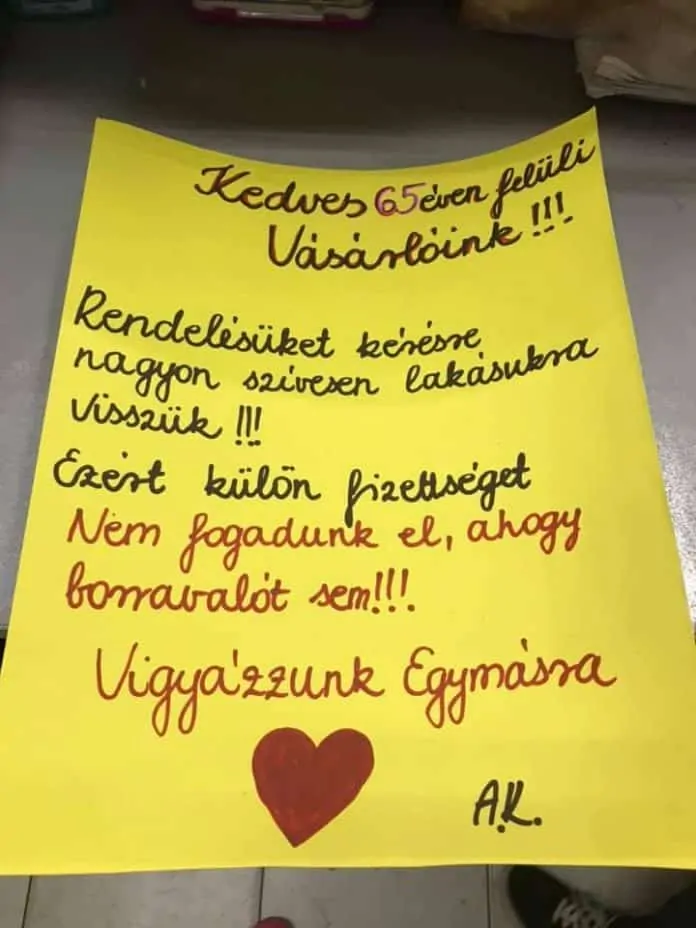 Kedves 65 éven felüli
Vásárlóink !!!
Rendelésüket kérésre
nagyon szívesen lakásukra
visszük !!!
Ezért külön fizettséget
Nem fogadunk el, ahogy
borravalót sem!!!
Vigyázzunk Egymásra
A.K.